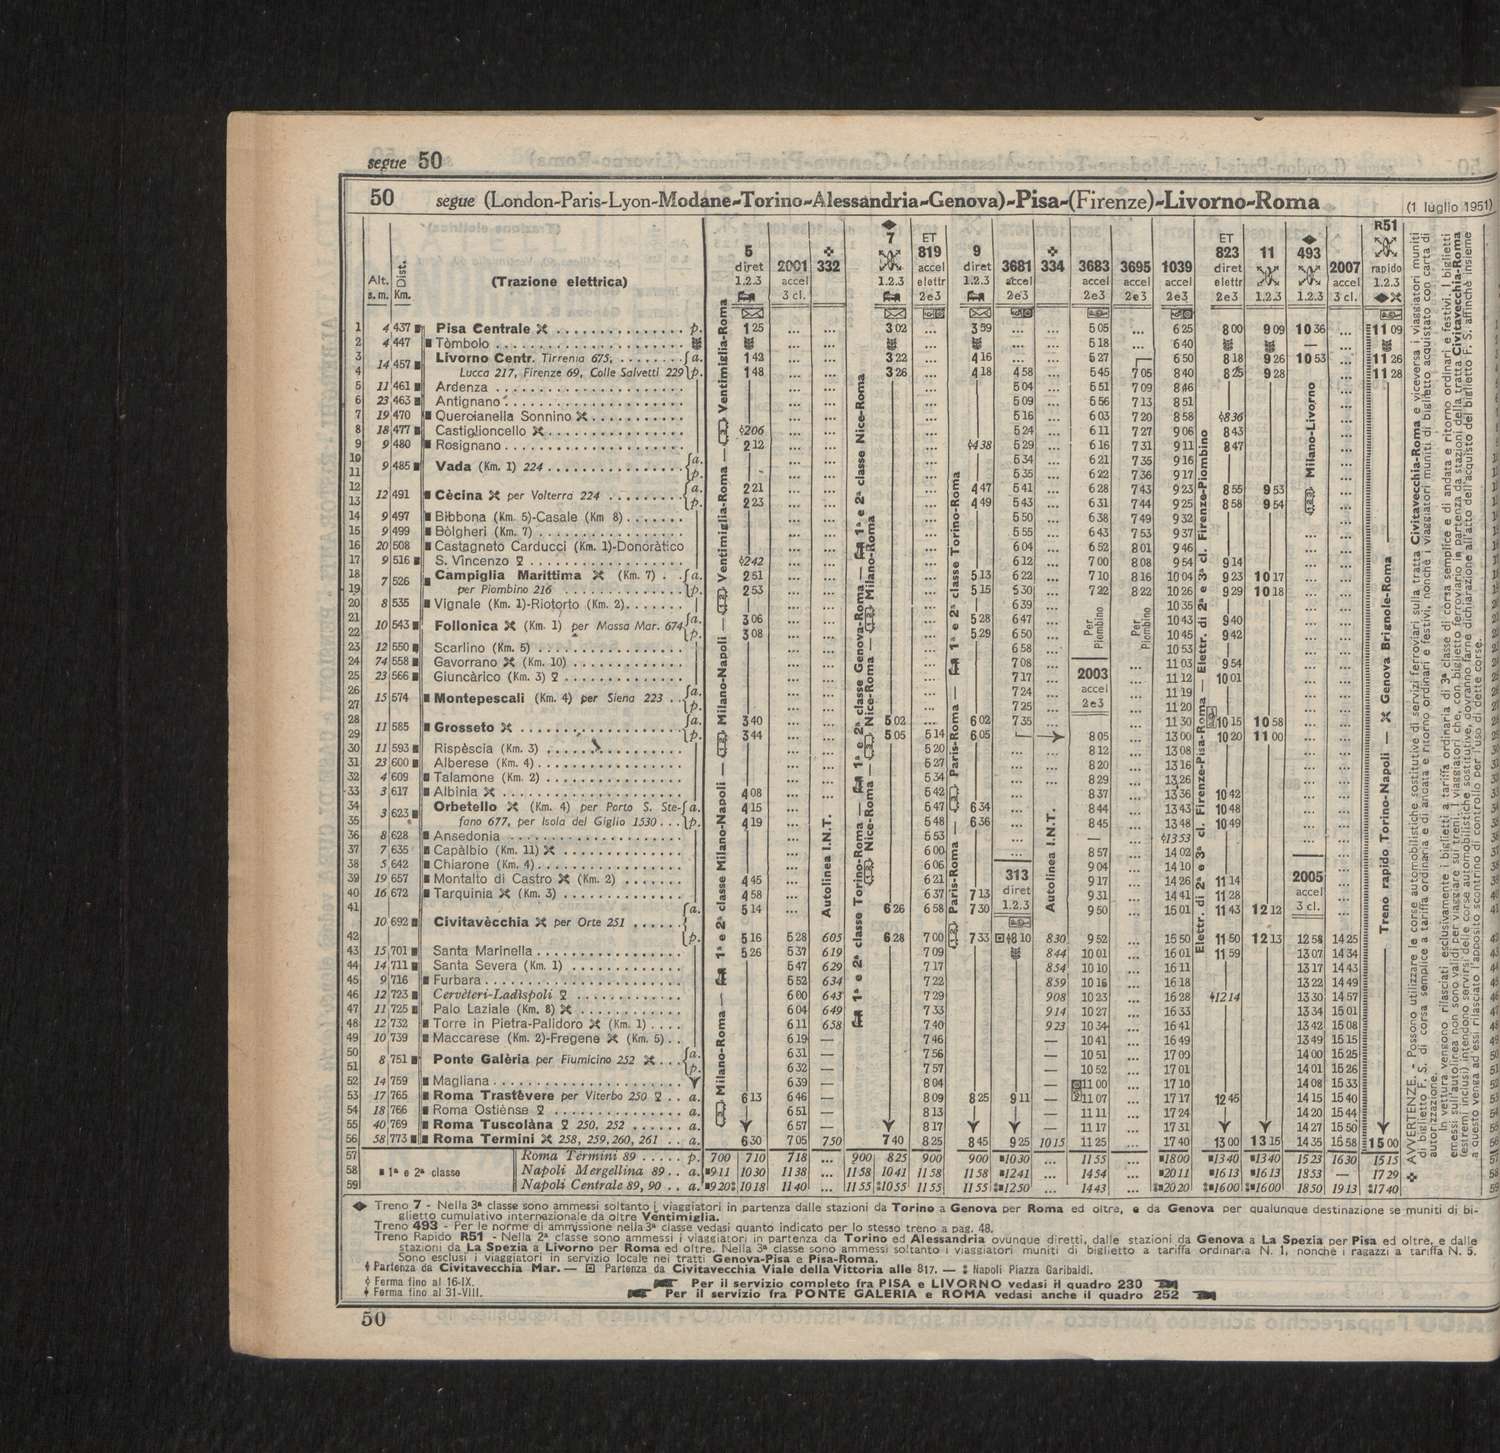 segue 50
50 segue (London-Paris-Lyon-Modane-Torino-Alessandria-Genova)-Pisa-(Firenze)-Livorno-Roma (1 luglio 1951)
Alt. s. m. Dist. Km. (Trazione elettrica)
5 diret 1.2.3
2001 accel 3 cl.
332
7 1.2.3
ET 819 accel elettr 2e3
9 diret 1.2.3
3681 accel 2e3
334
3683 accel 2e3
3695 2e3
1039 accel 2e3
ET 823 diret elettr 2e3
11 1.2.3
493 1.2.3
2007 accel 3 cl.
R51 rapido 1.2.3
1 4 437 Pisa Centrale p. 1 25 ... ... 3 02 ... 3 59 ... ... 5 05 ... 6 25 8 00 9 09 10 36 ... 11 09
2 4 447 Tòmbolo ... ... ... ... ... 5 18 ... 6 40 — ...
3 14 457 Livorno Centr. Tirrenia 675, a. 1 42 ... ... 3 22 ... 4 16 ... ... 5 27 6 50 8 18 9 26 10 53 ... 11 26
4 Lucca 217, Firenze 69, Colle Salvetti 229 p. 1 48 ... ... 3 26 ... 4 18 4 58 ... 5 45 7 05 8 40 8 25 9 28 ... 11 28
5 11 461 Ardenza 5 04 ... 5 51 7 09 8 46
6 23 463 Antignano 5 09 ... 5 56 7 13 8 51
7 19 470 Quercianella Sonnino 5 16 ... 6 03 7 20 8 58 836
8 18 477 Castiglioncello 206 5 24 ... 6 11 7 27 9 06 8 43
9 9 480 Rosignano 2 12 438 5 29 ... 6 16 7 31 9 11 8 47
10 9 485 Vada (Km. 1) 224 a. 5 34 ... 6 21 7 35 9 16
11 p. 5 35 ... 6 22 7 36 9 17
12 12 491 Cècina per Volterra 224 a. 2 21 4 47 5 41 ... 6 28 7 43 9 23 8 55 9 53
13 p. 2 23 4 49 5 43 ... 6 31 7 44 9 25 8 58 9 54
14 9 497 Bibbona (Km. 5)-Casale (Km 8) 5 50 ... 6 38 7 49 9 32
15 9 499 Bòlgheri (Km. 7) 5 55 ... 6 43 7 53 9 37
16 20 508 Castagneto Carducci (Km. 1)-Donòràtico 6 04 ... 6 52 8 01 9 46
17 9 516 S. Vincenzo 242 6 12 ... 7 00 8 08 9 54 9 14
18 7 526 Campiglia Marittima (Km. 7) a. 2 51 5 13 6 22 ... 7 10 8 16 10 04 9 23 10 17
19 per Piombino 216 p. 2 53 5 15 5 30 ... 7 22 8 22 10 26 9 29 10 18
20 8 535 Vignale (Km. 1)-Riotorto (Km. 2) 6 39 ... 10 35
21 10 543 Follonica (Km. 1) per Massa Mar. 674 a. 3 06 5 28 6 47 ... 10 43 9 40
22 p. 3 08 5 29 6 50 ... 10 45 9 42
23 12 550 Scarlino (Km. 5) 6 58 ... 10 53
24 74 558 Gavorrano (Km. 10) 7 08 ... 11 03 9 54
25 23 566 Giuncàrico (Km. 3) 7 17 ... 11 12 10 01
26 15 574 Montepescali (Km. 4) per Siena 223 a. 7 24 ... 11 19
27 p. 7 25 ... 11 20
28 11 585 Grosseto a. 3 40 5 02 ... 6 02 7 35 ... 11 30 10 15 10 58
29 p. 3 44 5 05 5 14 6 05 8 05 ... 13 00 10 20 11 00
30 11 593 Rispèscia (Km. 3) 5 20 8 12 ... 13 08
31 23 600 Alberese (Km. 4) 5 27 8 20 ... 13 16
32 4 609 Talamone (Km. 2) 5 34 8 29 ... 13 26
33 3 617 Albinia 4 08 5 42 8 37 ... 13 36 10 42
34 3 623 Orbetello (Km. 4) per Porto S. Ste- a. 4 15 5 47 6 34 8 44 ... 13 43 10 48
35 fano 677, per Isola del Giglio 1530 p. 4 19 5 48 6 36 8 45 ... 13 48 10 49
36 8 628 Ansedonia 5 53 — ... 13 53
37 7 635 Capàlbio (Km. 11) 6 00 8 57 ... 14 02
38 5 642 Chiarone (Km. 4) 6 06 9 04 ... 14 10
39 19 657 Montalto di Castro (Km. 2) 4 45 6 21 9 17 ... 14 26 11 14
40 16 672 Tarquinia (Km. 3) 4 58 6 37 7 13 9 31 ... 14 41 11 28
41 10 692 Civitavècchia per Orte 251 a. 5 14 6 26 6 58 7 30 9 50 ... 15 01 11 43 12 12
42 p. 5 16 5 28 605 6 28 7 00 7 33 8 10 830 9 52 ... 15 50 11 50 12 13 12 58 14 25
43 15 701 Santa Marinella 5 26 5 37 619 7 09 844 10 01 ... 16 01 11 59 13 07 14 34
44 14 711 Santa Severa (Km. 1) 5 47 629 7 17 854 10 10 ... 16 11 13 17 14 43
45 9 716 Furbara 5 52 634 7 22 859 10 16 ... 16 18 13 22 14 49
46 12 723 Cervèteri-Ladìspoli 6 00 643 7 29 908 10 23 ... 16 28 1214 13 30 14 57
47 11 725 Palo Laziale (Km. 8) 6 04 649 7 33 914 10 27 ... 16 33 13 34 15 01
48 12 732 Torre in Pietra-Palidoro (Km. 1) 6 11 658 7 40 923 10 34 ... 16 41 13 42 15 08
49 10 739 Maccarese (Km. 2)-Fregene (Km. 5) 6 19 — 7 46 — 10 41 ... 16 49 13 49 15 15
50 8 751 Ponte Galèria per Fiumicino 252 a. 6 31 — 7 56 — 10 51 ... 17 00 14 00 15 25
51 p. 6 32 — 7 57 — 10 52 ... 17 01 14 01 15 26
52 14 759 Magliana 6 39 — 8 04 — 11 00 ... 17 10 14 08 15 33
53 17 765 Roma Trastèvere per Viterbo 250 a. 6 13 6 46 — 8 09 8 25 9 11 — 11 07 ... 17 17 12 45 14 15 15 40
54 18 766 Roma Ostiènse a. 6 51 — 8 13 — 11 11 ... 17 24 14 20 15 44
55 40 769 Roma Tuscolàna 250, 252 a. 6 57 — 8 17 — 11 17 ... 17 31 14 27 15 50
56 58 773 Roma Termini 258, 259, 260, 261 a. 6 30 7 05 750 7 40 8 25 8 45 9 25 1015 11 25 17 40 13 00 13 15 14 35 15 58 15 00
57 Roma Tèrmini 89 p. 700 710 718 ... 900 825 900 900 1030 ... 1155 ... 1800 1340 1340 1523 1630 1515
58 1ª e 2ª classe Napoli Mergellina 89 a. 911 1030 1138 ... 1158 1041 1158 1158 1241 ... 1454 ... 2011 1613 1613 1853 — 1729
59 Napoli Centrale 89, 90 a. 920 1018 1140 ... 1155 1055 1155 1155 1250 ... 1443 ... 2020 1600 1600 1850 1913 1740
Per Piombino
Per Piombino
2003 accel 2e3
313 diret 1.2.3
2005 accel 3 cl.
Milano-Roma — 1ª e 2ª classe Milano-Napoli — Milano-Napoli — Ventimiglia-Roma — Ventimiglia-Roma
Autolinea I.N.T.
1ª e 2ª classe Torino-Roma — 1ª e 2ª classe Genova-Roma — 1ª e 2ª classe Nice-Roma
Nice-Roma — Nice-Roma — Milano-Roma
Paris-Roma — Paris-Roma — 1ª e 2ª classe Torino-Roma
Autolinea I.N.T.
Elettr. di 2ª e 3ª cl. Firenze-Pisa-Roma — Elettr. di 2ª e 3ª cl. Firenze-Piombino
Milano-Livorno
Treno rapido Torino-Napoli — Genova Brignole-Roma
AVVERTENZE. - Possono utilizzare le corse automobilistiche sostitutive di servizi ferroviari sulla tratta Civitavecchia-Roma e viceversa i viaggiatori muniti
di biglietto F. S. di corsa semplice a tariffa ordinaria e di andata e ritorno ordinari e festivi, nonchè i viaggiatori muniti di biglietto acquistato con carta di
autorizzazione.
In vettura vengono rilasciati esclusivamente i biglietti a tariffa ordinaria di 3ª classe di corsa semplice e di andata e ritorno ordinari e festivi. I biglietti
emessi sull'autolinea non sono validi per viaggiare sui treni. I viaggiatori che, con biglietto ferroviario in partenza da stazioni della tratta Civitavecchia-Roma
(estremi inclusi) intendono servirsi delle corse automobilistiche sostitutive, dovranno farne dichiarazione all'atto dell'acquisto del biglietto F. S. affinchè insieme
a questo venga ad essi rilasciato l'apposito scontrino di controllo per l'uso di dette corse.
Treno 7 - Nella 3ª classe sono ammessi soltanto i viaggiatori in partenza dalle stazioni da Torino a Genova per Roma ed oltre, e da Genova per qualunque destinazione se muniti di bi-
glietto cumulativo internazionale da oltre Ventimiglia.
Treno 493 - Per le norme di ammissione nella 3ª classe vedasi quanto indicato per lo stesso treno a pag. 48.
Treno Rapido R51 - Nella 2ª classe sono ammessi i viaggiatori in partenza da Torino ed Alessandria ovunque diretti, dalle stazioni da Genova a La Spezia per Pisa ed oltre, e dalle
stazioni da La Spezia a Livorno per Roma ed oltre. Nella 3ª classe sono ammessi soltanto i viaggiatori muniti di biglietto a tariffa ordinaria N. 1, nonchè i ragazzi a tariffa N. 5.
Sono esclusi i viaggiatori in servizio locale nei tratti Genova-Pisa e Pisa-Roma.
Partenza da Civitavecchia Mar. — Partenza da Civitavecchia Viale della Vittoria alle 817. — Napoli Piazza Garibaldi.
Ferma fino al 16-IX. Per il servizio completo fra PISA e LIVORNO vedasi il quadro 230
Ferma fino al 31-VIII. Per il servizio fra PONTE GALERIA e ROMA vedasi anche il quadro 252
50